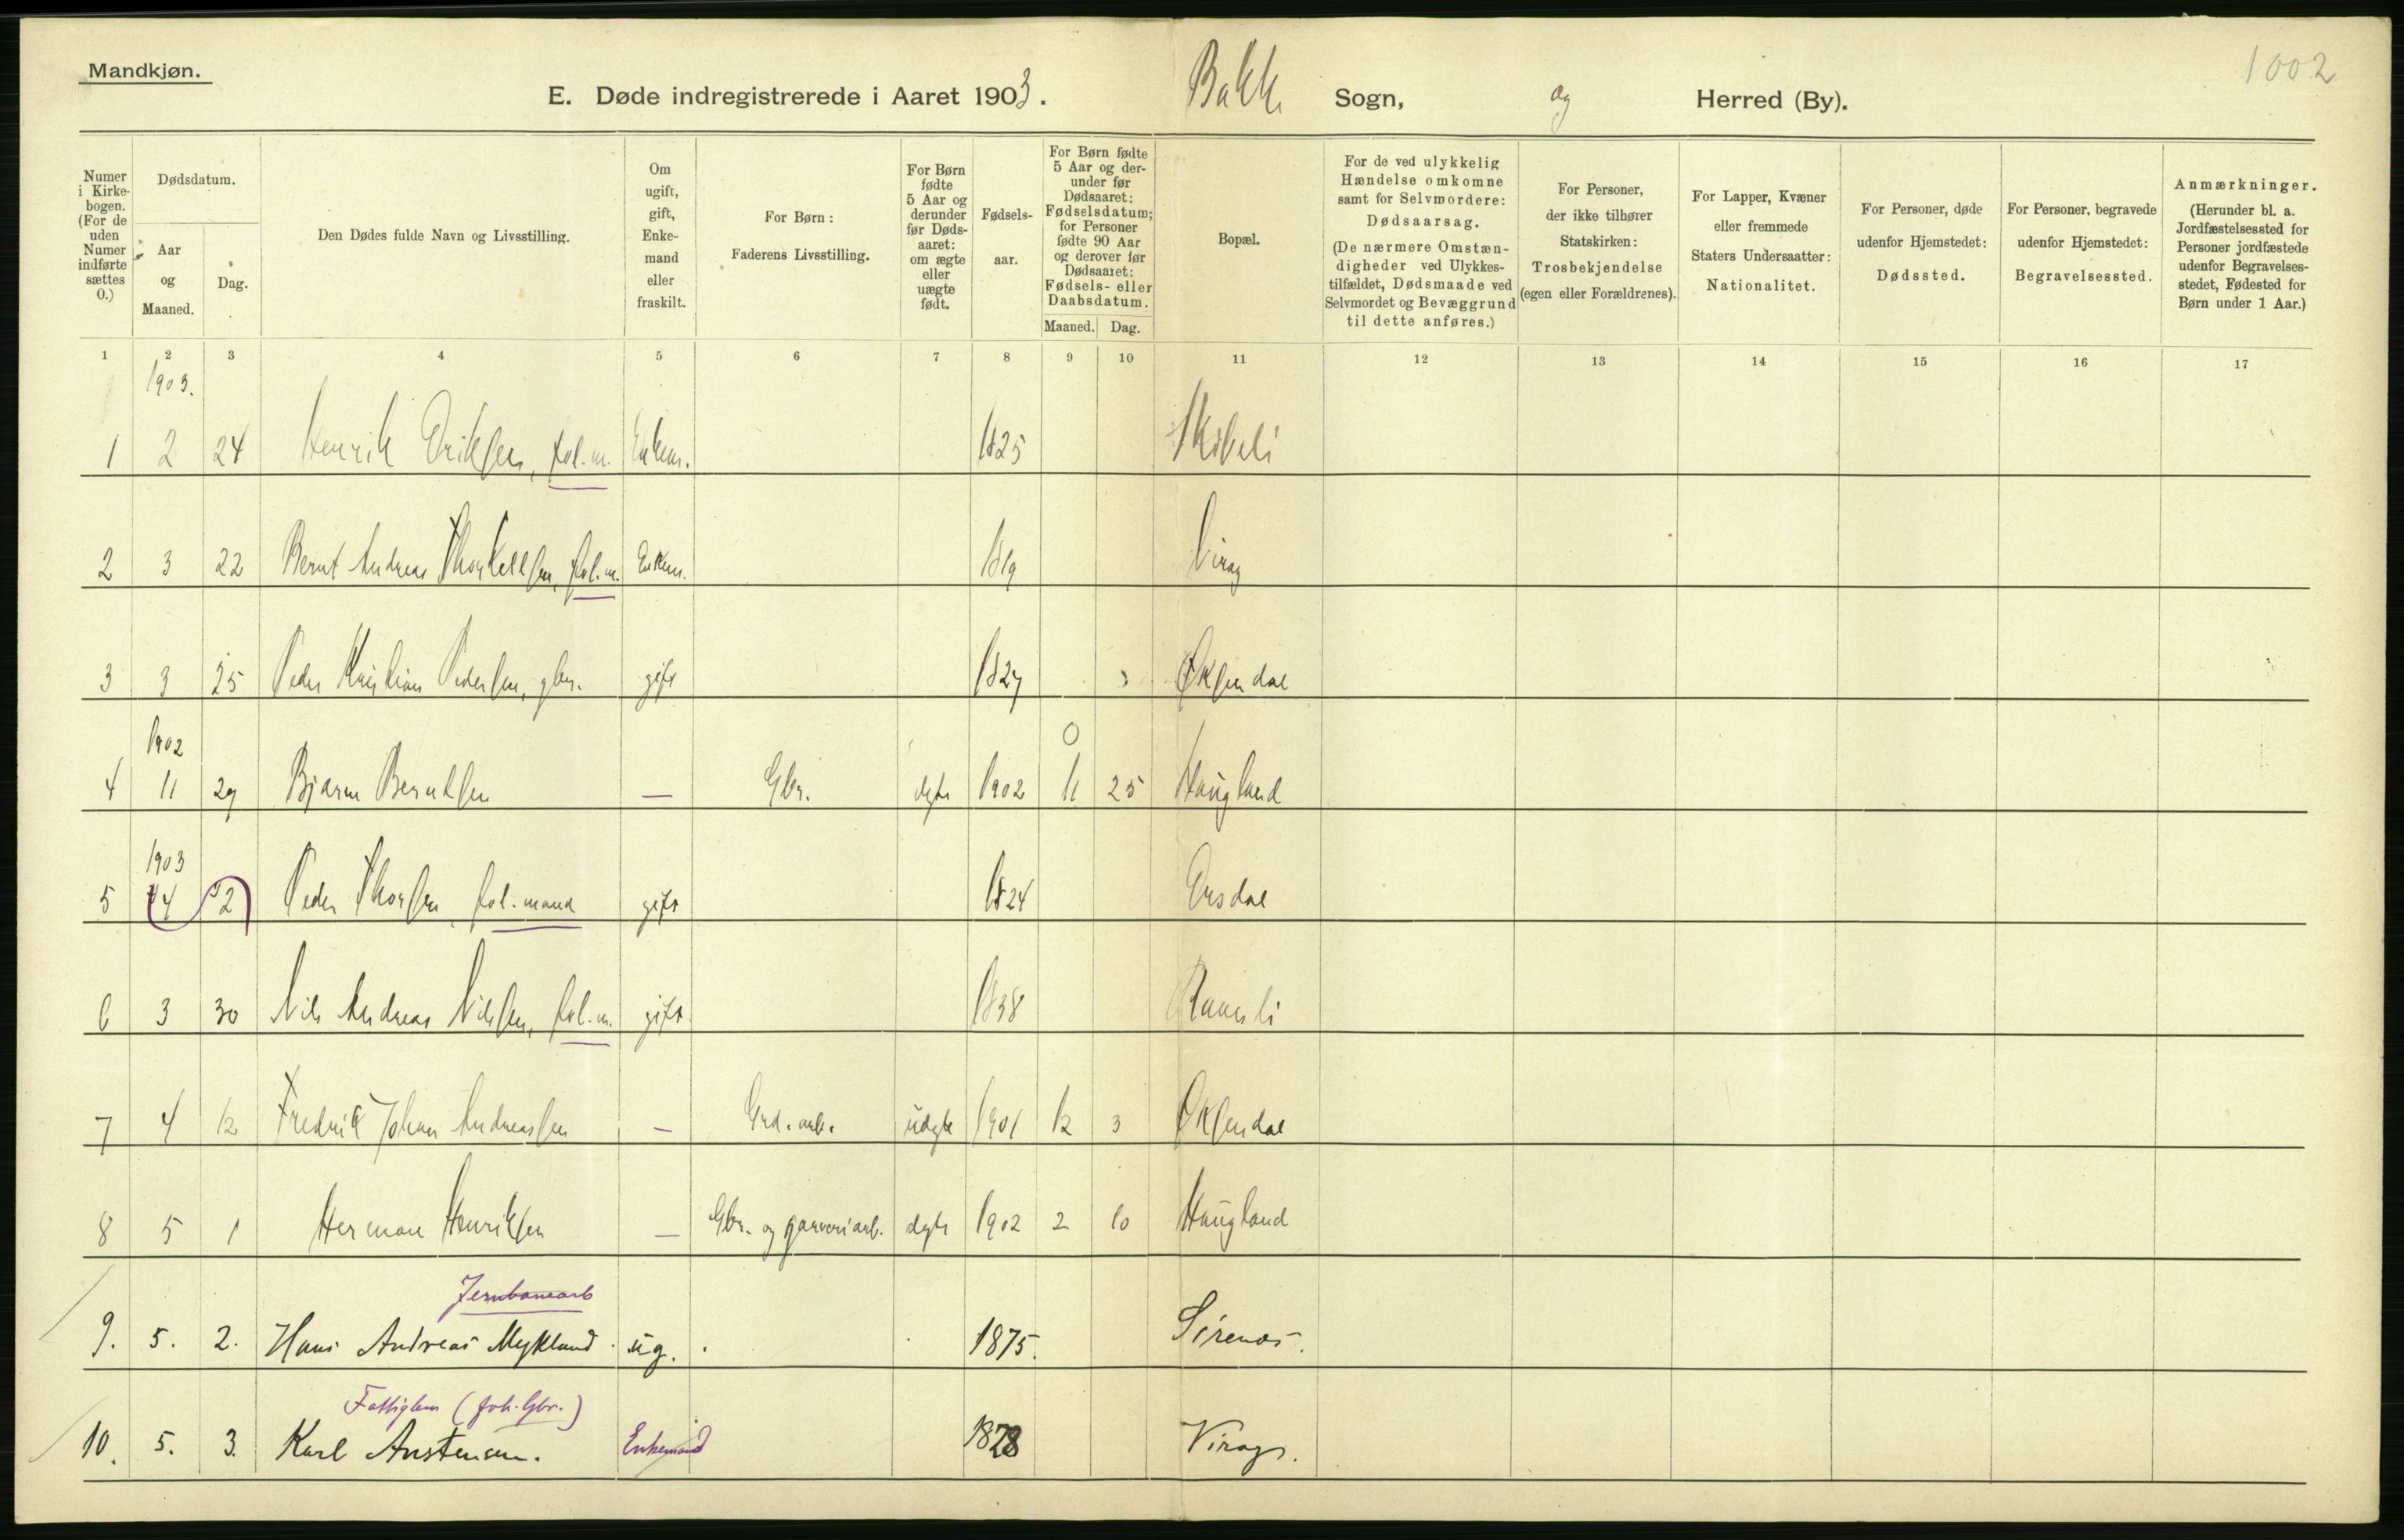 Mandkjøn.
1002
E. Døde indregistrerede i Aaret 1903. Bakke Sogn, og Herred (By).
Numer i Kirkebogen. (For de uden Numer indførte sættes 0.)
Dødsdatum.
Aar og Maaned.
Dag.
Den Dødes fulde Navn og Livsstilling.
Om ugift, gift, Enkemand eller fraskilt.
For Børn: Faderens Livsstilling.
For Børn fødte 5 Aar og derunder før Dødsaaret: om ægte eller uægte født.
Fødselsaar.
For Børn fødte 5 Aar og derunder før Dødsaaret: Fødselsdatum; for Personer fødte 90 Aar og derover før Dødsaaret: Fødsels- eller Daabsdatum.
Maaned. Dag.
Bopæl.
For de ved ulykkelig Hændelse omkomne samt for Selvmordere: Dødsaarsag. (De nærmere Omstændigheder ved Ulykkestilfældet, Dødsmaade ved Selvmordet og Bevæggrund til dette anføres.)
For Personer, der ikke tilhører Statskirken: Trosbekjendelse (egen eller Forældrenes).
For Lapper, Kvæner eller fremmede Staters Undersaatter: Nationalitet.
For Personer, døde udenfor Hjemstedet: Dødssted.
For Personer, begravede udenfor Hjemstedet: Begravelsessted.
Anmærkninger. (Herunder bl. a. Jordfæstelsessted for Personer jordfæstede udenfor Begravelsesstedet, Fødested for Børn under 1 Aar.)
1 2 3 4 5 6 7 8 9 10 11 12 13 14 15 16 17
1903.
1 2 24 Henrik Eriksen, fol.m. Enkem. 1825 Skibeli
2 3 22 Bernt Andreas Thorkellsen, fol.m. Enkem. 1819 Virag
3 3 25 Peder Kristian Pedersen, gbr. gift 1827 Øksendal
1902 0
4 11 29 Bjarne Berntsen — Gbr. ægte 1902 11 25 Haugland
1903
5 4 2 Peder Thorsen, fol.mand gift 1824 Ersdal
6 3 30 Nils Andreas Nilsen, fol.m. gift 1838 Ravnli
7 4 12 Fredrik Johan Andreassen — Grd.arb. uægte 1901 12 3 Øksendal
8 5 1 Herman Henriksen — Gbr. og garveriarb. ægte 1902 2 10 Haugland
Jernbanearb
9. 5. 2. Hans Andreas Mykland. ug. 1875. Sirenæs.
Fattiglem (foh. Gbr.)
10. 5. 3. Karl Austensen. Enkemand 1828 Virag.